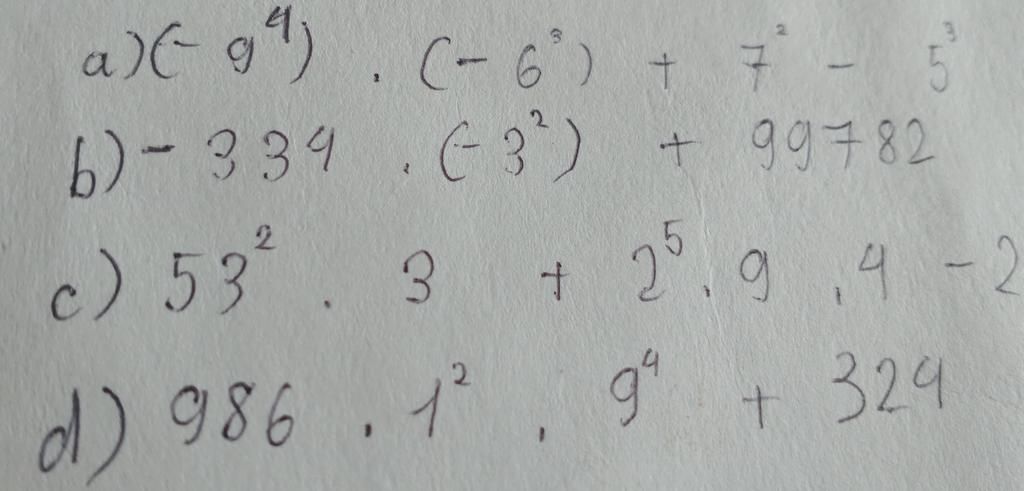 a) (- 9⁴) . (- 6³) + 7² - 5³
b) - 334 . (- 3²) + 99782
c) 53² . 3 + 2⁵ . 9 . 4 - 2
d) 986 . 1² . 9⁴ + 324